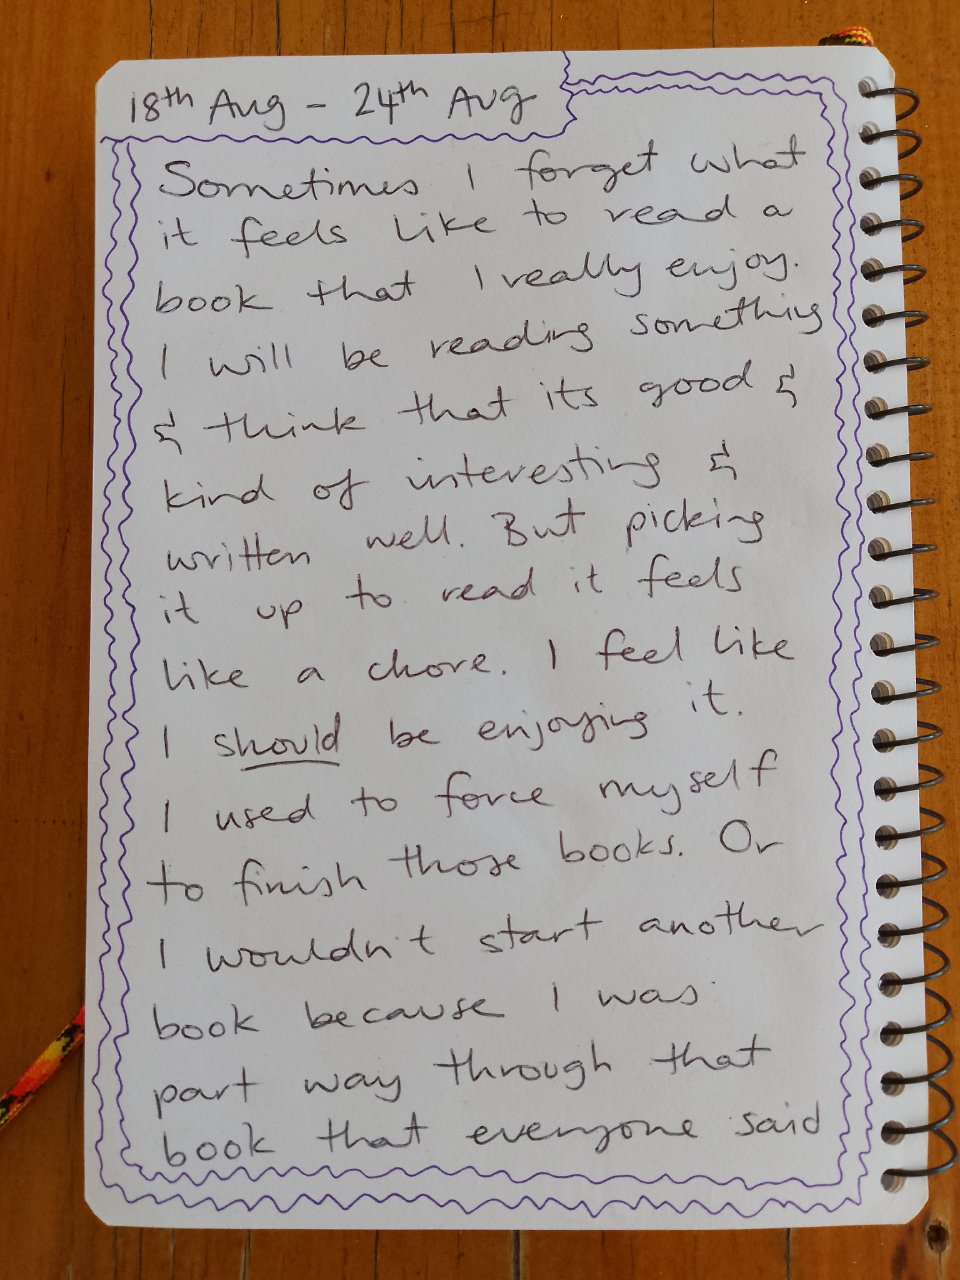 18th Aug - 24th Aug
Sometimes I forget what
it feels like to read a
book that I really enjoy.
I will be reading something
& think that its good &
kind of interesting &
written well. But picking
it up to read it feels
like a chore. I feel like
I should be enjoying it.
I used to force myself
to finish those books. Or
I wouldn't start another
book because I was
part way through that
book that everyone said